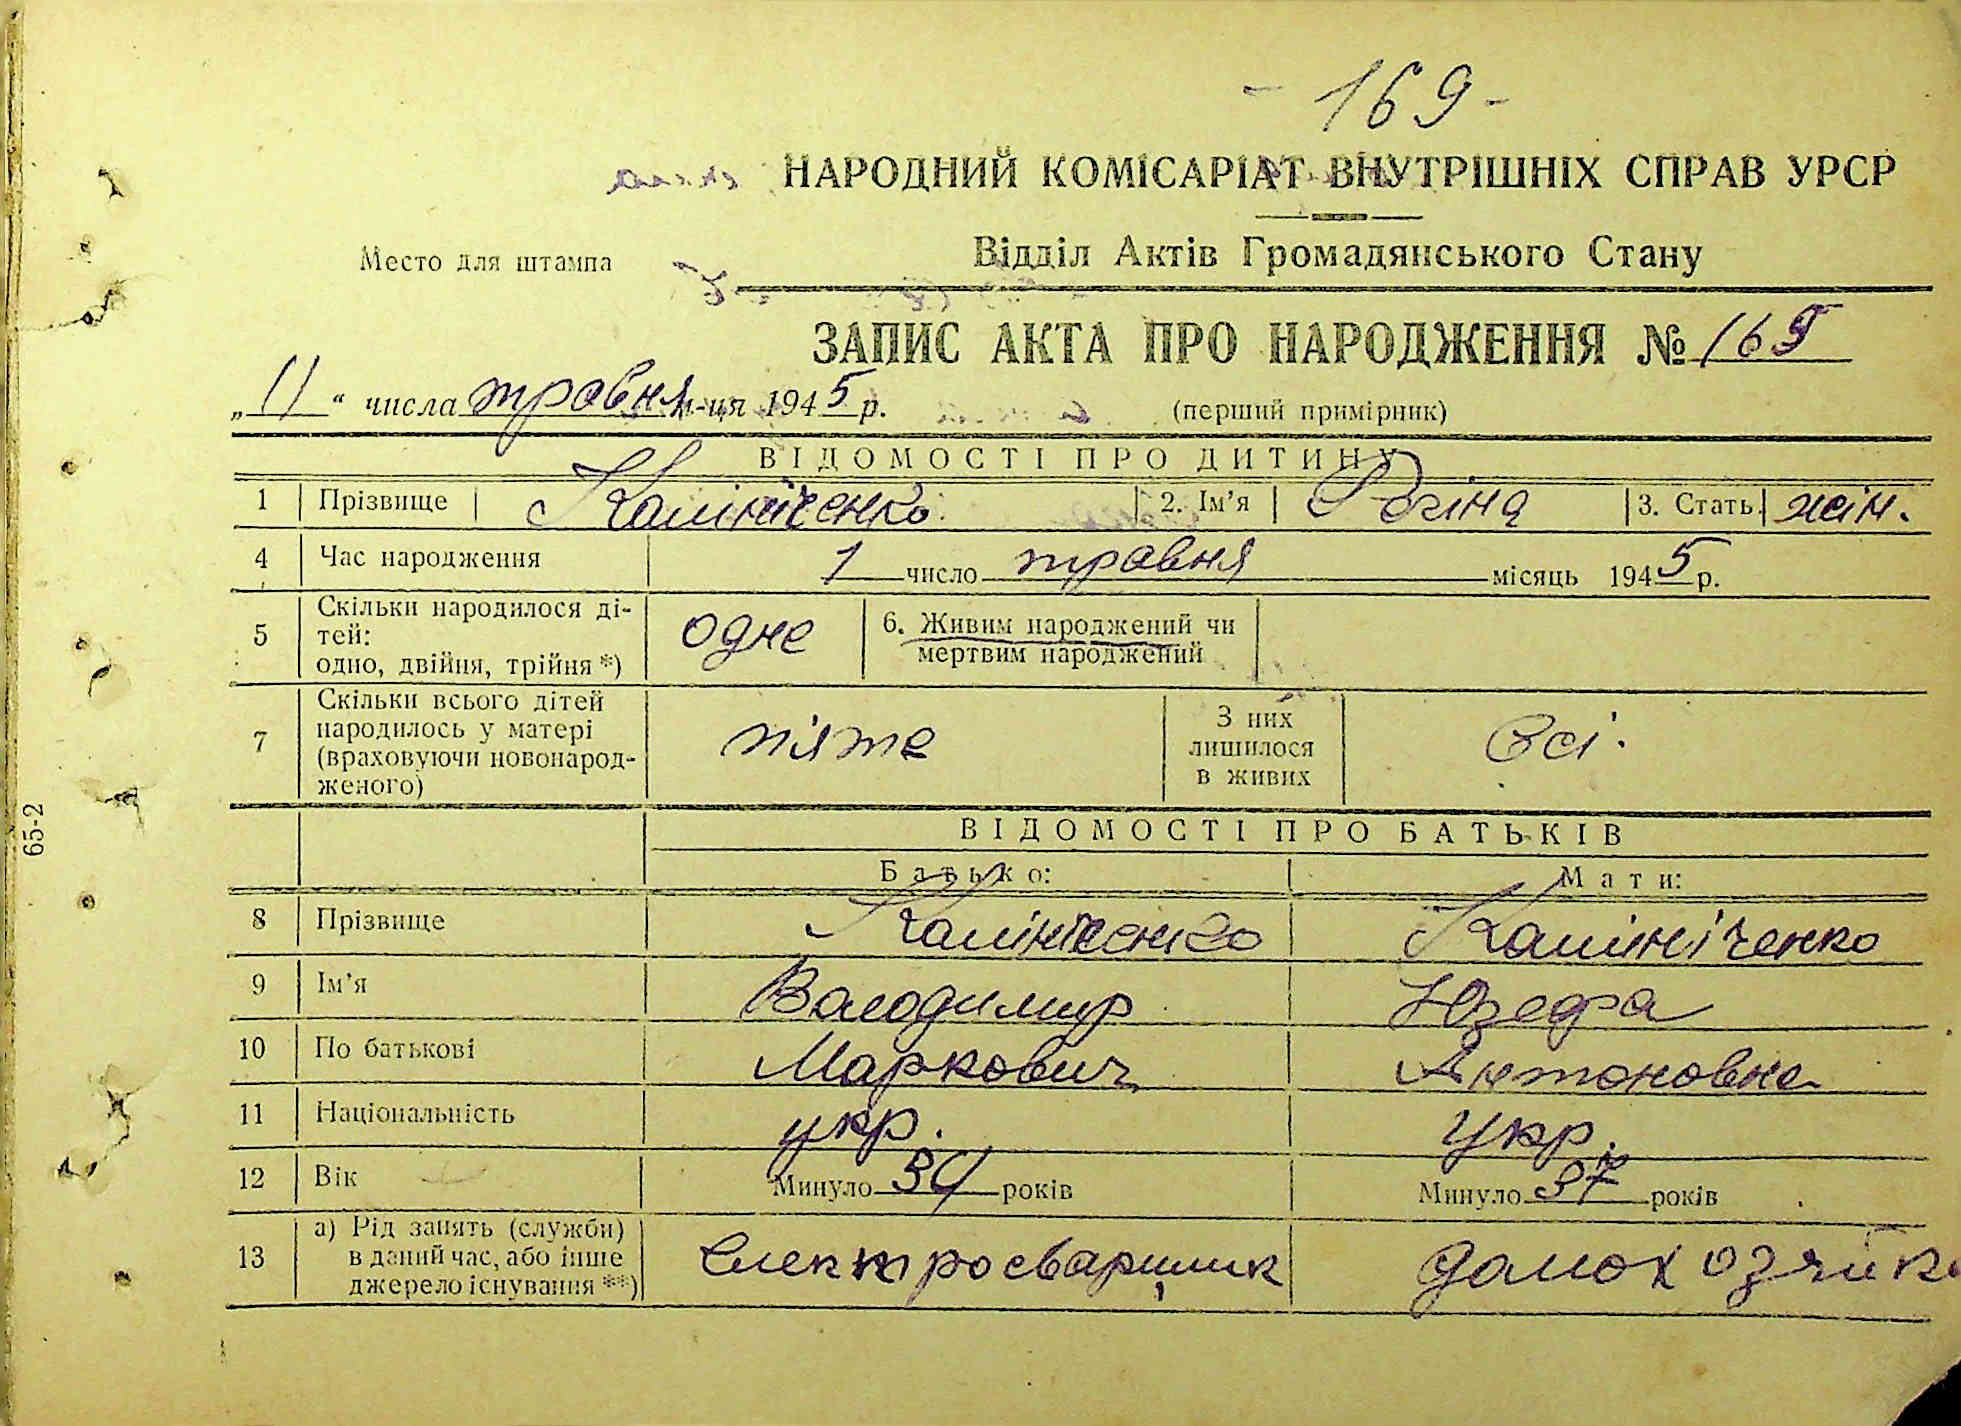 - 169 -
НАРОДНИЙ КОМІСАРІАТ ВНУТРІШНІХ СПРАВ УРСР
Место для штампа
Відділ Актів Громадянського Стану
ЗАПИС АКТА ПРО НАРОДЖЕННЯ № 169
„11“ числа травня м-ця 1945 р. (перший примірник)
ВІДОМОСТІ ПРО ДИТИНУ
1 Прізвище Камініченко 2. Ім’я Регіна 3. Стать жін.
4 Час народження 1 число травня місяць 1945 р.
5 Скільки народилося ді-
тей:
одно, двійня, трійня *) одне 6. Живим народжений чи
мертвим народжений
7 Скільки всього дітей
народилось у матері
(враховуючи новонарод-
женого) п'яте З них
лишилося
в живих всі.
ВІДОМОСТІ ПРО БАТЬКІВ
Батько: Мати:
8 Прізвище Камініченко Камініченко
9 Ім’я Володимир Юзефа
10 По батькові Маркович Антоновна
11 Національність укр. укр.
12 Вік Минуло 39 років Минуло 37 років
13 а) Рід занять (служби)
в даний час, або інше
джерело існування **) Електросварщик домохозяйка
65-2